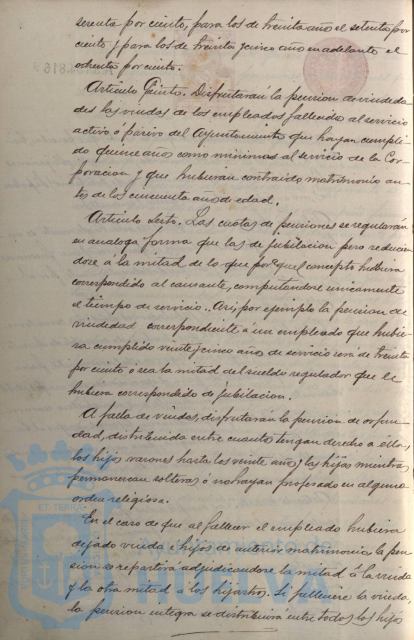 sesenta por ciento, para los de treinta años el setenta por
ciento y para los de treinta y cinco años en adelante el
ochenta por ciento.
Artículo Quinto. Disfrutarán la pension de viudeda
des las viudas de los empleados fallecidos al servicio
activo ó pasivo del Ayuntamiento que hayan cumpli-
do quince años como minimas al servicio de la Cor
poracion y que hubieran contraido matrimonio an-
tes de los cincuenta años de edad.
Artículo Sexto. Las cuotas de pensiones se regularán
en analoga forma que las de jubilacion pero reducien
dose á la mitad de lo que por aquel concepto hubiera
correspondido al causante, computandose unicamente
el tiempo de servicio. Asi, por ejemplo la pension de
viudedad correspondiente á un empleado que hubie-
ra cumplido veinte y cinco años de servicio será de treinta
por ciento ó sea la mitad del sueldo regulador que le
hubiera correspondido de jubilacion.
A falta de viudas, disfrutarán la pension de orfan
dad, distribuida entre cuantos tengan derecho á ella,
los hijos varones hasta los veinte años y las hijas mientras
permanezcan solteras ó no hayan profesado en alguna
orden religiosa.
En el caso de que al fallecer el empleado hubiera
dejado viuda é hijos de anterior matrimonio la pen
sion se repartirá adjudicandose la mitad á la viuda
y la otra mitad á los hijastros. Si falleciere la viuda,
la pension integra se distribuirá entre todos los hijos